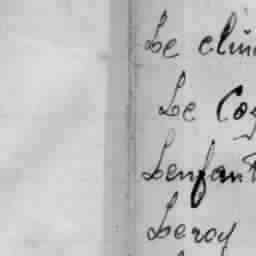 Le clin
Le Coz
Lenfant
Leroy